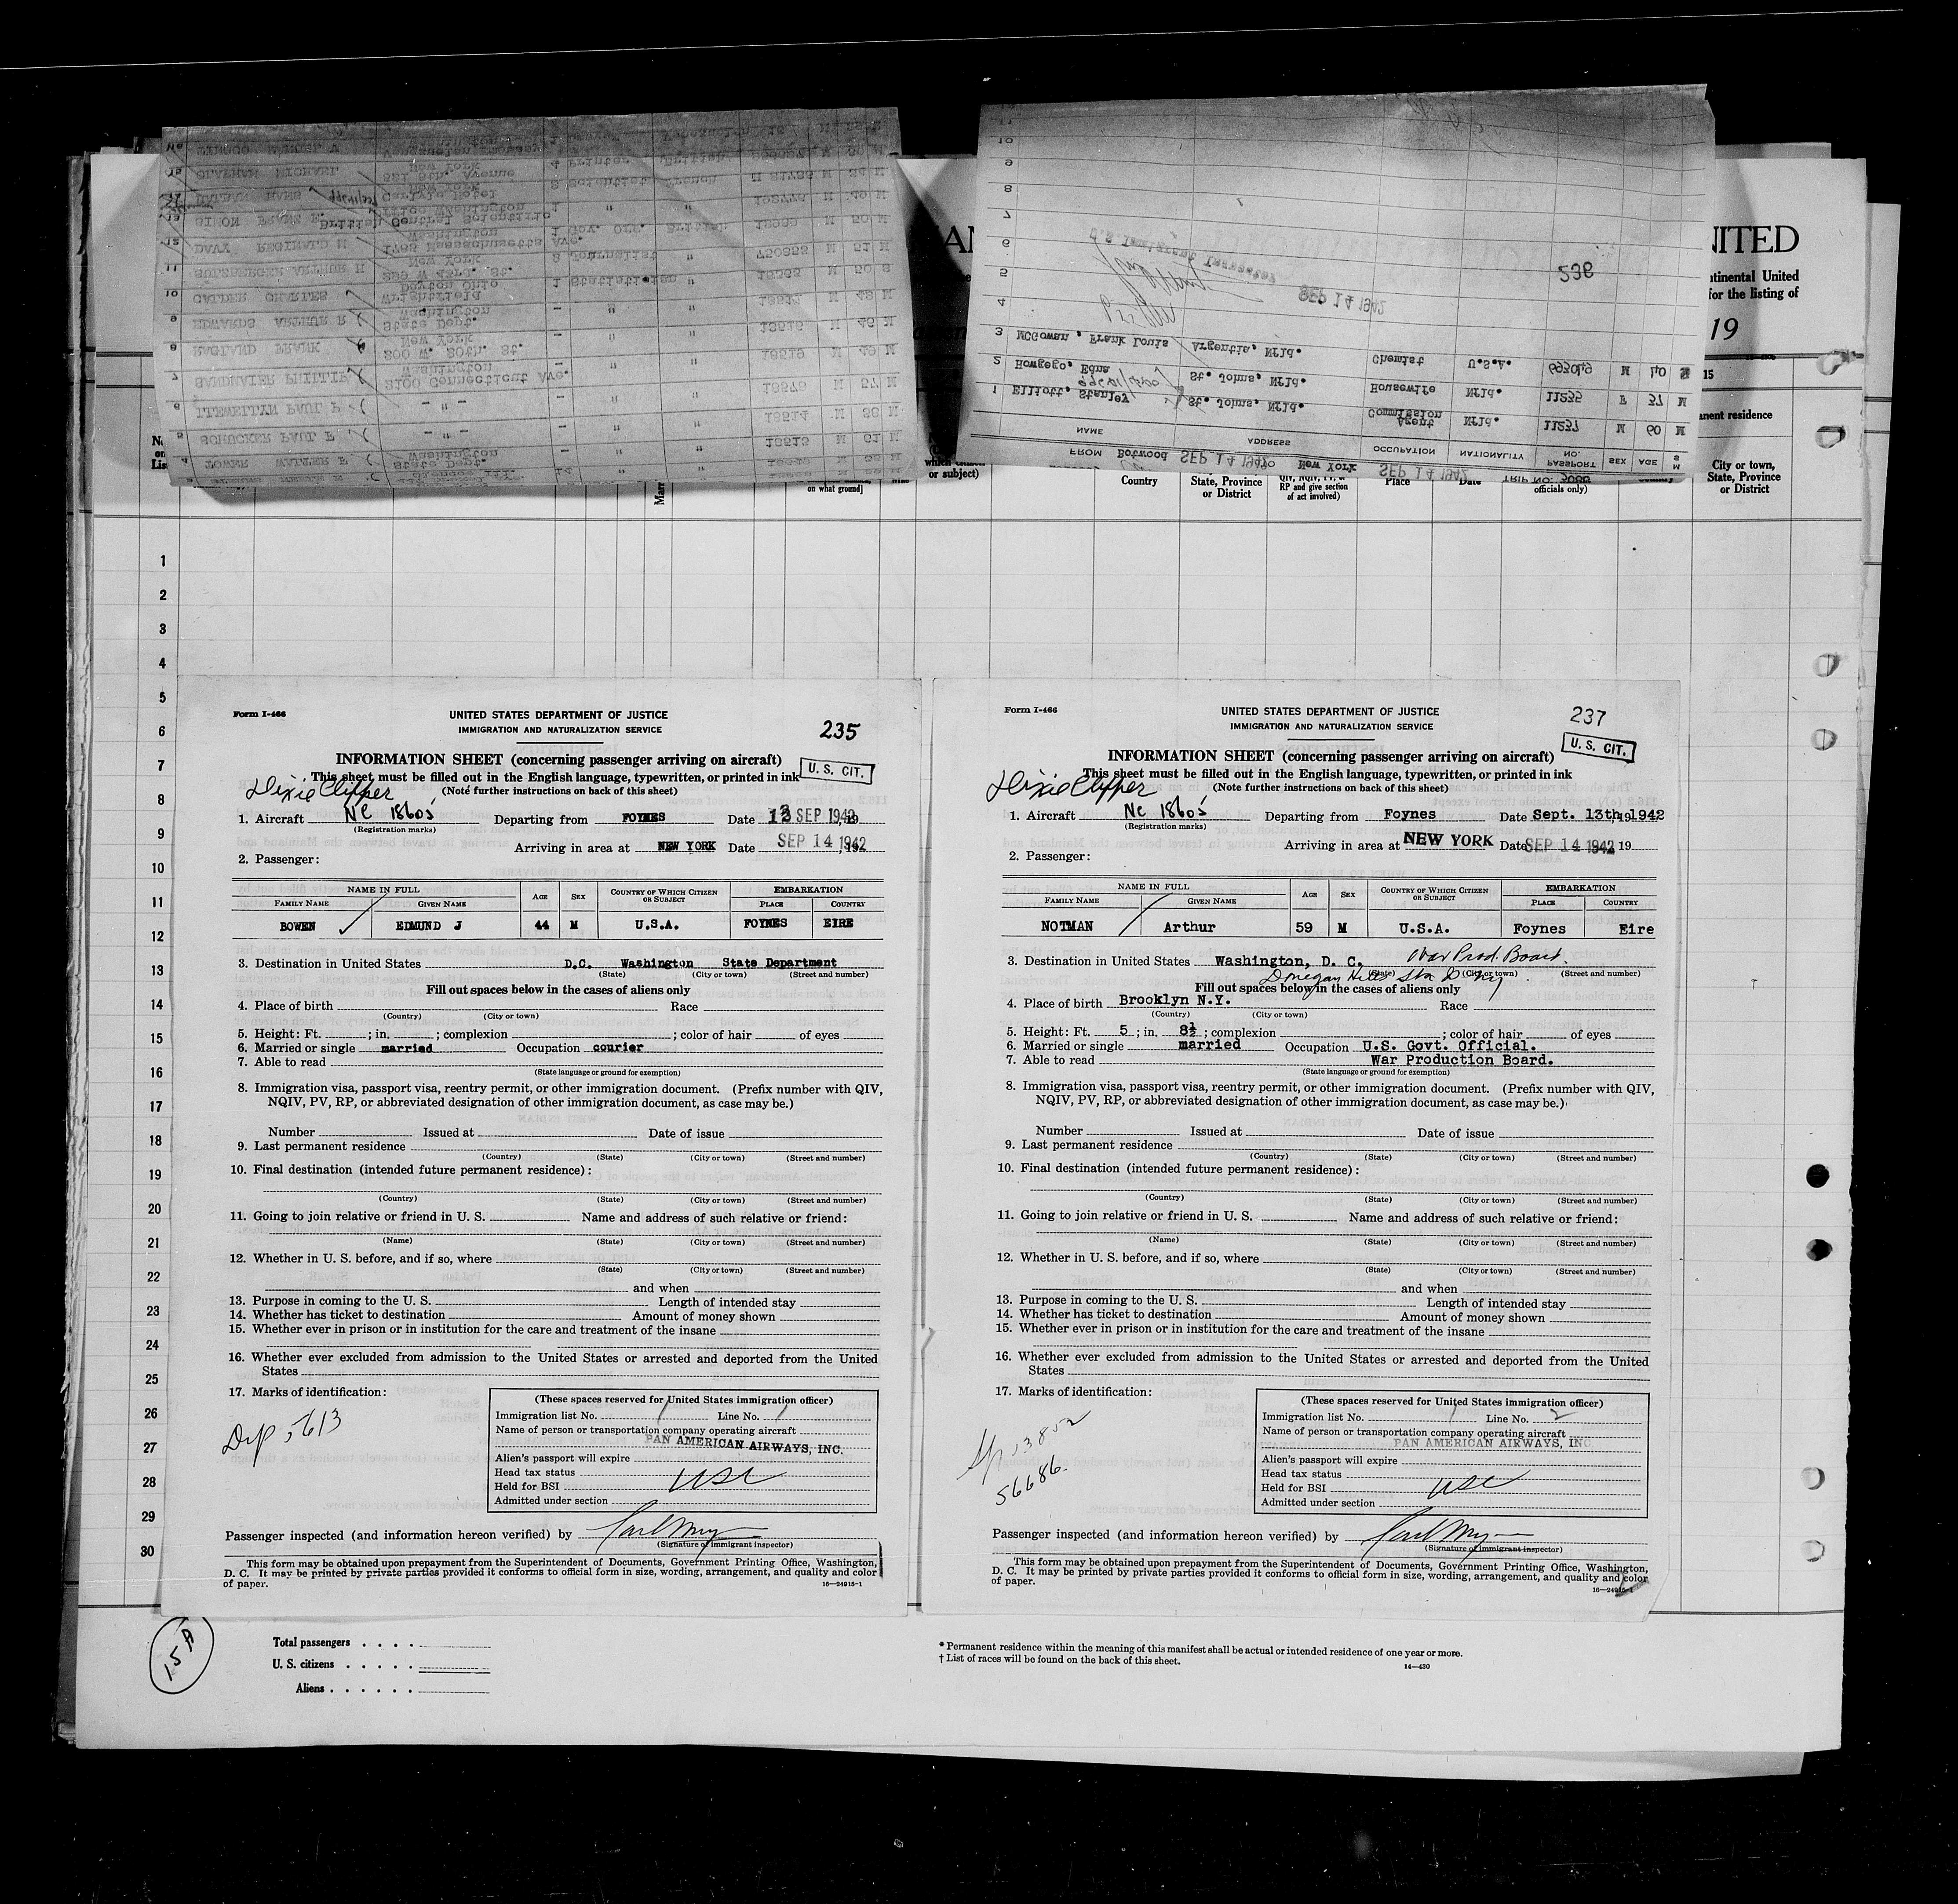 UNITED
ntinental United
for the listing of
19
15
anent residence
No
on
Lis
Marr
on what ground]
which citizen
or subject)
Country
State, Province
or District
RP and give section
of act involved)
Place
Date
officials only)
City or town,
State, Province
or District
TOWER WALTER F State Dept.
Washington
SCHUCKER PAUL F - " - " " 18513 M 61 M
LLEWELLYN PAUL P - " - " " 18514 M 38 M
3100 Connecticut Ave.
Washington
300 W. 20th. St.
New York
EDWARDS ARTHUR R State Dept.
Washington
CALDER CHARLES Wrightfield
Dayton Ohio
SULZBERGER ARTHUR H 229 W 43rd. St.
New York
DAVY REGINALD M 1785 Massachusetts Ave.
Washington
British Central Scientific
Carlyle Hotel
New York
MICHAEL 521 5th. Avenue
New York
FROM Botwood SEP 14 1942 New York SEP 14 1942
NAME ADDRESS OCCUPATION NATIONALITY PASSPORT NO. SEX AGE
1 Elliott, Stanley St. Johns, Nfld. Commission Agent Nfld. 11237 M 60 M
2 Howgego, Edna St. Johns, Nfld. Housewife Nfld. 11235 F 37 M
3 McGowan, Frank Louis Argentia, Nfld. Chemist U.S.A. M 40
4
5
6
7
8
9
10
SEP 14 1942
U.S. Immigrant Inspector
238
1
2
3
4
5
6
7
8
9
10
11
12
13
14
15
16
17
18
19
20
21
22
23
24
25
26
27
28
29
30
Form I-466
UNITED STATES DEPARTMENT OF JUSTICE
IMMIGRATION AND NATURALIZATION SERVICE
235
INFORMATION SHEET (concerning passenger arriving on aircraft)
U. S. CIT.
This sheet must be filled out in the English language, typewritten, or printed in ink
Dixie Clipper
(Note further instructions on back of this sheet)
1. Aircraft NC 18605 Departing from FOYNES Date 13 SEP 1942
(Registration marks)
Arriving in area at NEW YORK Date SEP 14 1942
2. Passenger:
NAME IN FULL AGE SEX COUNTRY OF WHICH CITIZEN OR SUBJECT EMBARKATION
FAMILY NAME GIVEN NAME PLACE COUNTRY
BOWEN EDMUND J 44 M U.S.A. FOYNES EIRE
3. Destination in United States D.C. Washington State Department
(State) (City or town) (Street and number)
Fill out spaces below in the cases of aliens only
4. Place of birth Race
(Country) (City or town)
5. Height: Ft. ; in. ; complexion ; color of hair of eyes
6. Married or single married Occupation courier
7. Able to read
(State language or ground for exemption)
8. Immigration visa, passport visa, reentry permit, or other immigration document. (Prefix number with QIV,
NQIV, PV, RP, or abbreviated designation of other immigration document, as case may be.)
Number Issued at Date of issue
9. Last permanent residence
(Country) (State) (City or town) (Street and number)
10. Final destination (intended future permanent residence):
(Country) (State) (City or town) (Street and number)
11. Going to join relative or friend in U. S. Name and address of such relative or friend:
(Name) (State) (City or town) (Street and number)
12. Whether in U. S. before, and if so, where
(State) (City or town) (Street and number)
and when
13. Purpose in coming to the U. S. Length of intended stay
14. Whether has ticket to destination Amount of money shown
15. Whether ever in prison or in institution for the care and treatment of the insane
16. Whether ever excluded from admission to the United States or arrested and deported from the United
States
17. Marks of identification:
Dip 5613
(These spaces reserved for United States immigration officer)
Immigration list No. 1 Line No. 1
Name of person or transportation company operating aircraft
PAN AMERICAN AIRWAYS, INC.
Alien's passport will expire
Head tax status USC
Held for BSI
Admitted under section
Passenger inspected (and information hereon verified) by
(Signature of immigrant inspector)
This form may be obtained upon prepayment from the Superintendent of Documents, Government Printing Office, Washington,
D. C. It may be printed by private parties provided it conforms to official form in size, wording, arrangement, and quality and color
of paper.
16—24915-1
Form I-466
UNITED STATES DEPARTMENT OF JUSTICE
IMMIGRATION AND NATURALIZATION SERVICE
237
U. S. CIT.
INFORMATION SHEET (concerning passenger arriving on aircraft)
This sheet must be filled out in the English language, typewritten, or printed in ink
Dixie Clipper
(Note further instructions on back of this sheet)
1. Aircraft NC 18605 Departing from Foynes Date Sept. 13th 1942
(Registration marks)
Arriving in area at NEW YORK Date SEP 14 1942 19
2. Passenger:
NAME IN FULL AGE SEX COUNTRY OF WHICH CITIZEN OR SUBJECT EMBARKATION
FAMILY NAME GIVEN NAME PLACE COUNTRY
NOTMAN Arthur 59 M U.S.A. Foynes Eire
3. Destination in United States Washington, D. C. War Prod. Board.
(State) (City or town) (Street and number)
Fill out spaces below in the cases of aliens only
4. Place of birth Brooklyn N.Y. Race
(Country) (City or town)
5. Height: Ft. 5 ; in. 8½ ; complexion ; color of hair of eyes
6. Married or single married Occupation U.S. Govt. Official.
7. Able to read War Production Board.
(State language or ground for exemption)
8. Immigration visa, passport visa, reentry permit, or other immigration document. (Prefix number with QIV,
NQIV, PV, RP, or abbreviated designation of other immigration document, as case may be.)
Number Issued at Date of issue
9. Last permanent residence
(Country) (State) (City or town) (Street and number)
10. Final destination (intended future permanent residence):
(Country) (State) (City or town) (Street and number)
11. Going to join relative or friend in U. S. Name and address of such relative or friend:
(Name) (State) (City or town) (Street and number)
12. Whether in U. S. before, and if so, where
(State) (City or town) (Street and number)
and when
13. Purpose in coming to the U. S. Length of intended stay
14. Whether has ticket to destination Amount of money shown
15. Whether ever in prison or in institution for the care and treatment of the insane
16. Whether ever excluded from admission to the United States or arrested and deported from the United
States
17. Marks of identification:
Sp 53852
56686.
(These spaces reserved for United States immigration officer)
Immigration list No. 1 Line No. 2
Name of person or transportation company operating aircraft
PAN AMERICAN AIRWAYS, INC.
Alien's passport will expire
Head tax status USC
Held for BSI
Admitted under section
Passenger inspected (and information hereon verified) by
(Signature of immigrant inspector)
This form may be obtained upon prepayment from the Superintendent of Documents, Government Printing Office, Washington,
D. C. It may be printed by private parties provided it conforms to official form in size, wording, arrangement, and quality and color
of paper.
16—24915-1
15A
Total passengers . . . .
U. S. citizens . . . . .
Aliens . . . . . .
* Permanent residence within the meaning of this manifest shall be actual or intended residence of one year or more.
† List of races will be found on the back of this sheet.
14—430